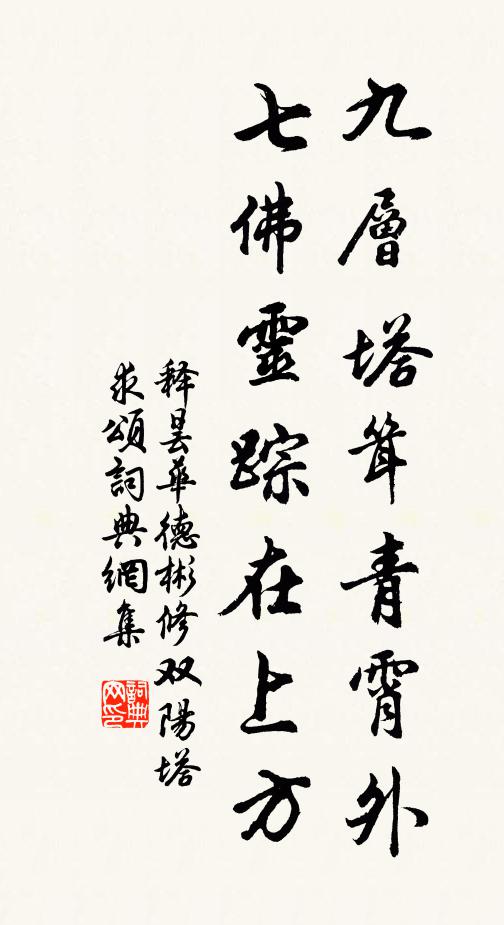 九層塔耸青霄外
七佛靈踪在上方
释曇華德彬修双陽塔
求頌詞典網集
詞典
网印